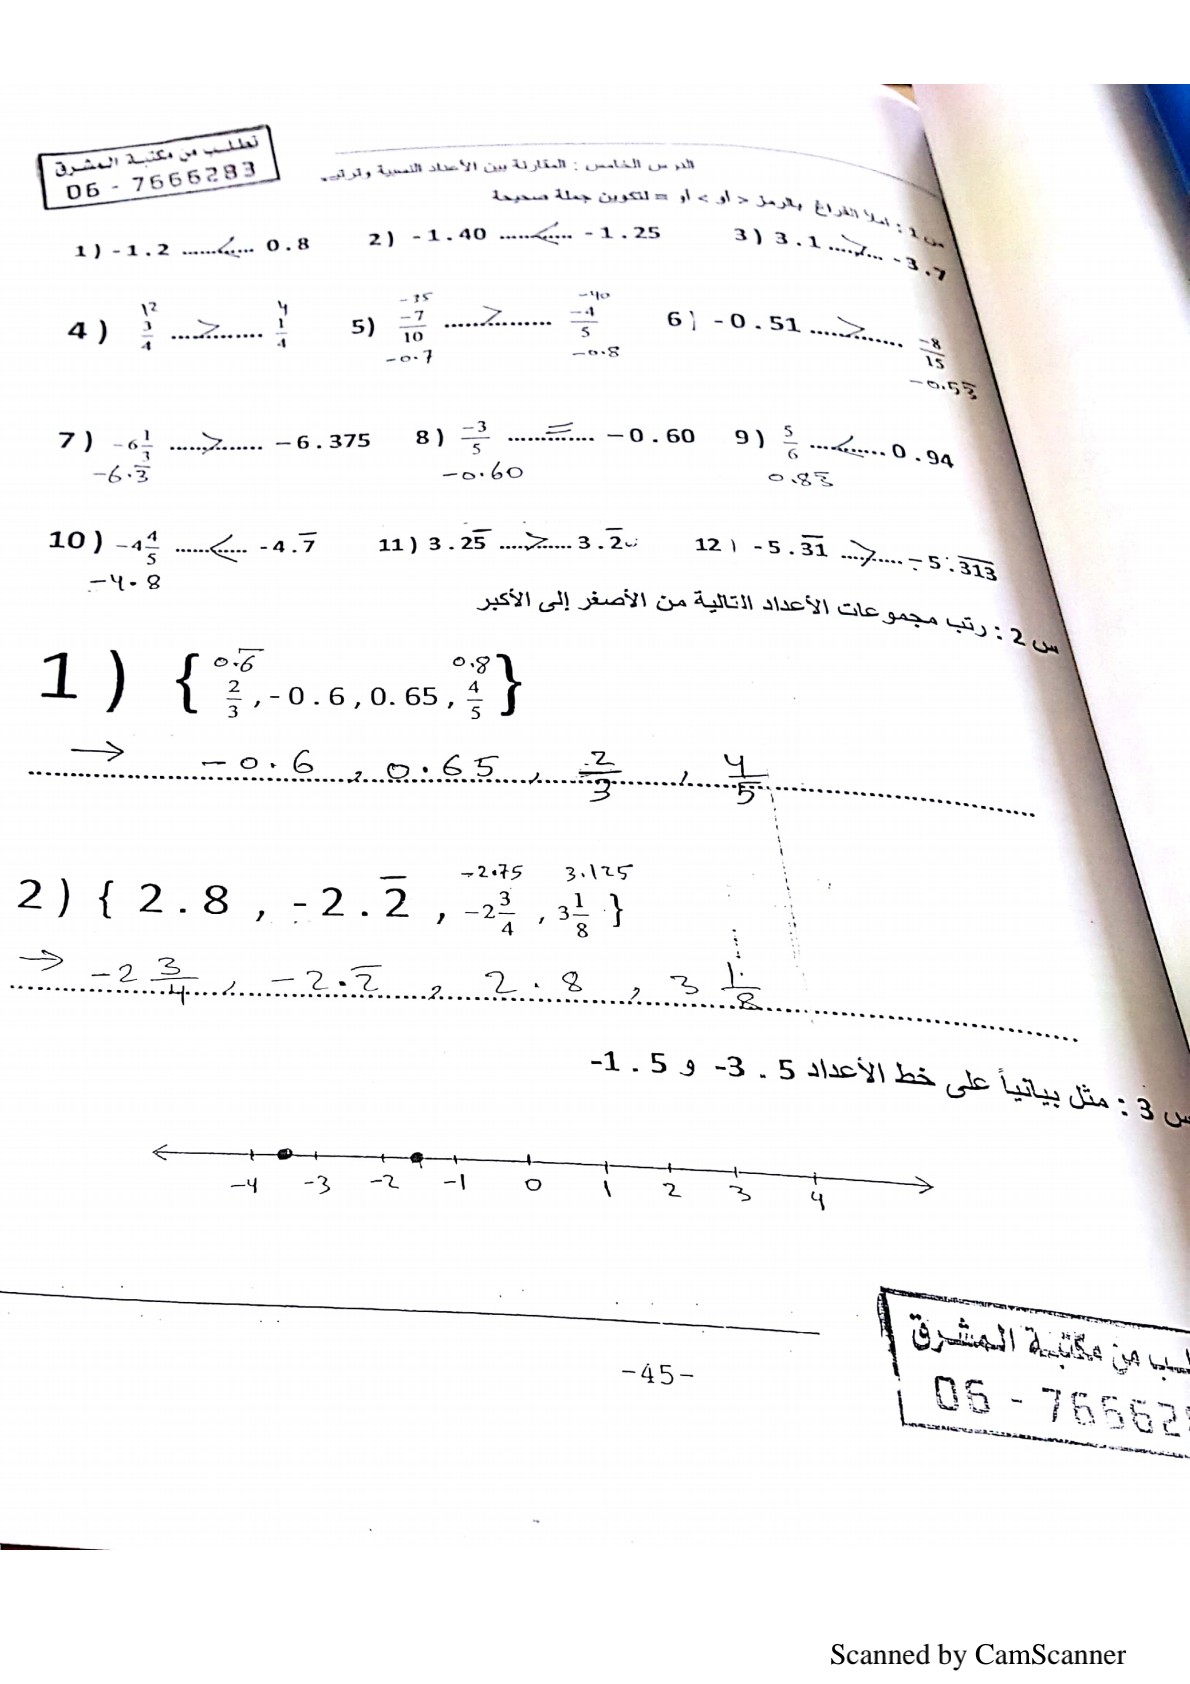 تطلب من مكتبة المشرق
06 - 7666283
الدرس الخامس : المقارنة بين الأعداد النسبية وترتيبها
س 1 : املأ الفراغ بالرمز > أو < أو = لتكوين جملة صحيحة
1 ) -1.2 ......<...... 0.8 2 ) -1.40 ......<...... -1.25 3 ) 3.1 ......>...... -3.7
12 4 -35 -40
4 ) 3/4 ......>...... 1/4 5) -7/10 ......>...... -4/5 6) -0.51 ......>...... -8/15
-0.7 -0.8 -0.53̅
7 ) -6 1/3 ......>...... -6.375 8 ) -3/5 ......=...... -0.60 9 ) 5/6 ......<...... 0.94
-6.3̅ -0.60 0.83̅
10 ) -4 4/5 ......<...... -4.7̅ 11 ) 3.2̅5̅ ......>...... 3.2̅ 12 ) -5.3̅1̅ ......>...... -5.3̅1̅3̅
-4.8
س 2 : رتب مجموعات الأعداد التالية من الأصغر إلى الأكبر
0.6̅ 0.8
1 ) { 2/3 , -0.6 , 0.65 , 4/5 }
→ -0.6 , 0.65 , 2/3 , 4/5
-2.75 3.125
2 ) { 2.8 , -2.2̅ , -2 3/4 , 3 1/8 }
→ -2 3/4 , -2.2̅ , 2.8 , 3 1/8
س 3 : مثل بيانياً على خط الأعداد -3.5 و -1.5
-4 -3 -2 -1 0 1 2 3 4
-45-
من مكتبة المشرق
06 - 766628
Scanned by CamScanner